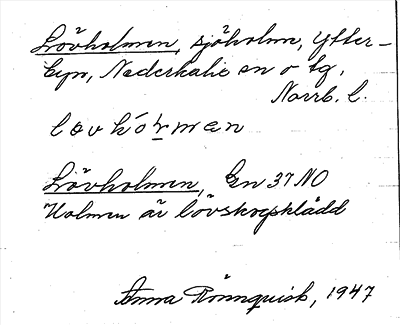 Lövholmen, sjöholm, Ytter-
byn, Nederkalix sn o tg,
Norrb. l.
Lövholmen, Gen 37 NO
Holmen är lövskogsklädd
Anna Rönnquist, 1947